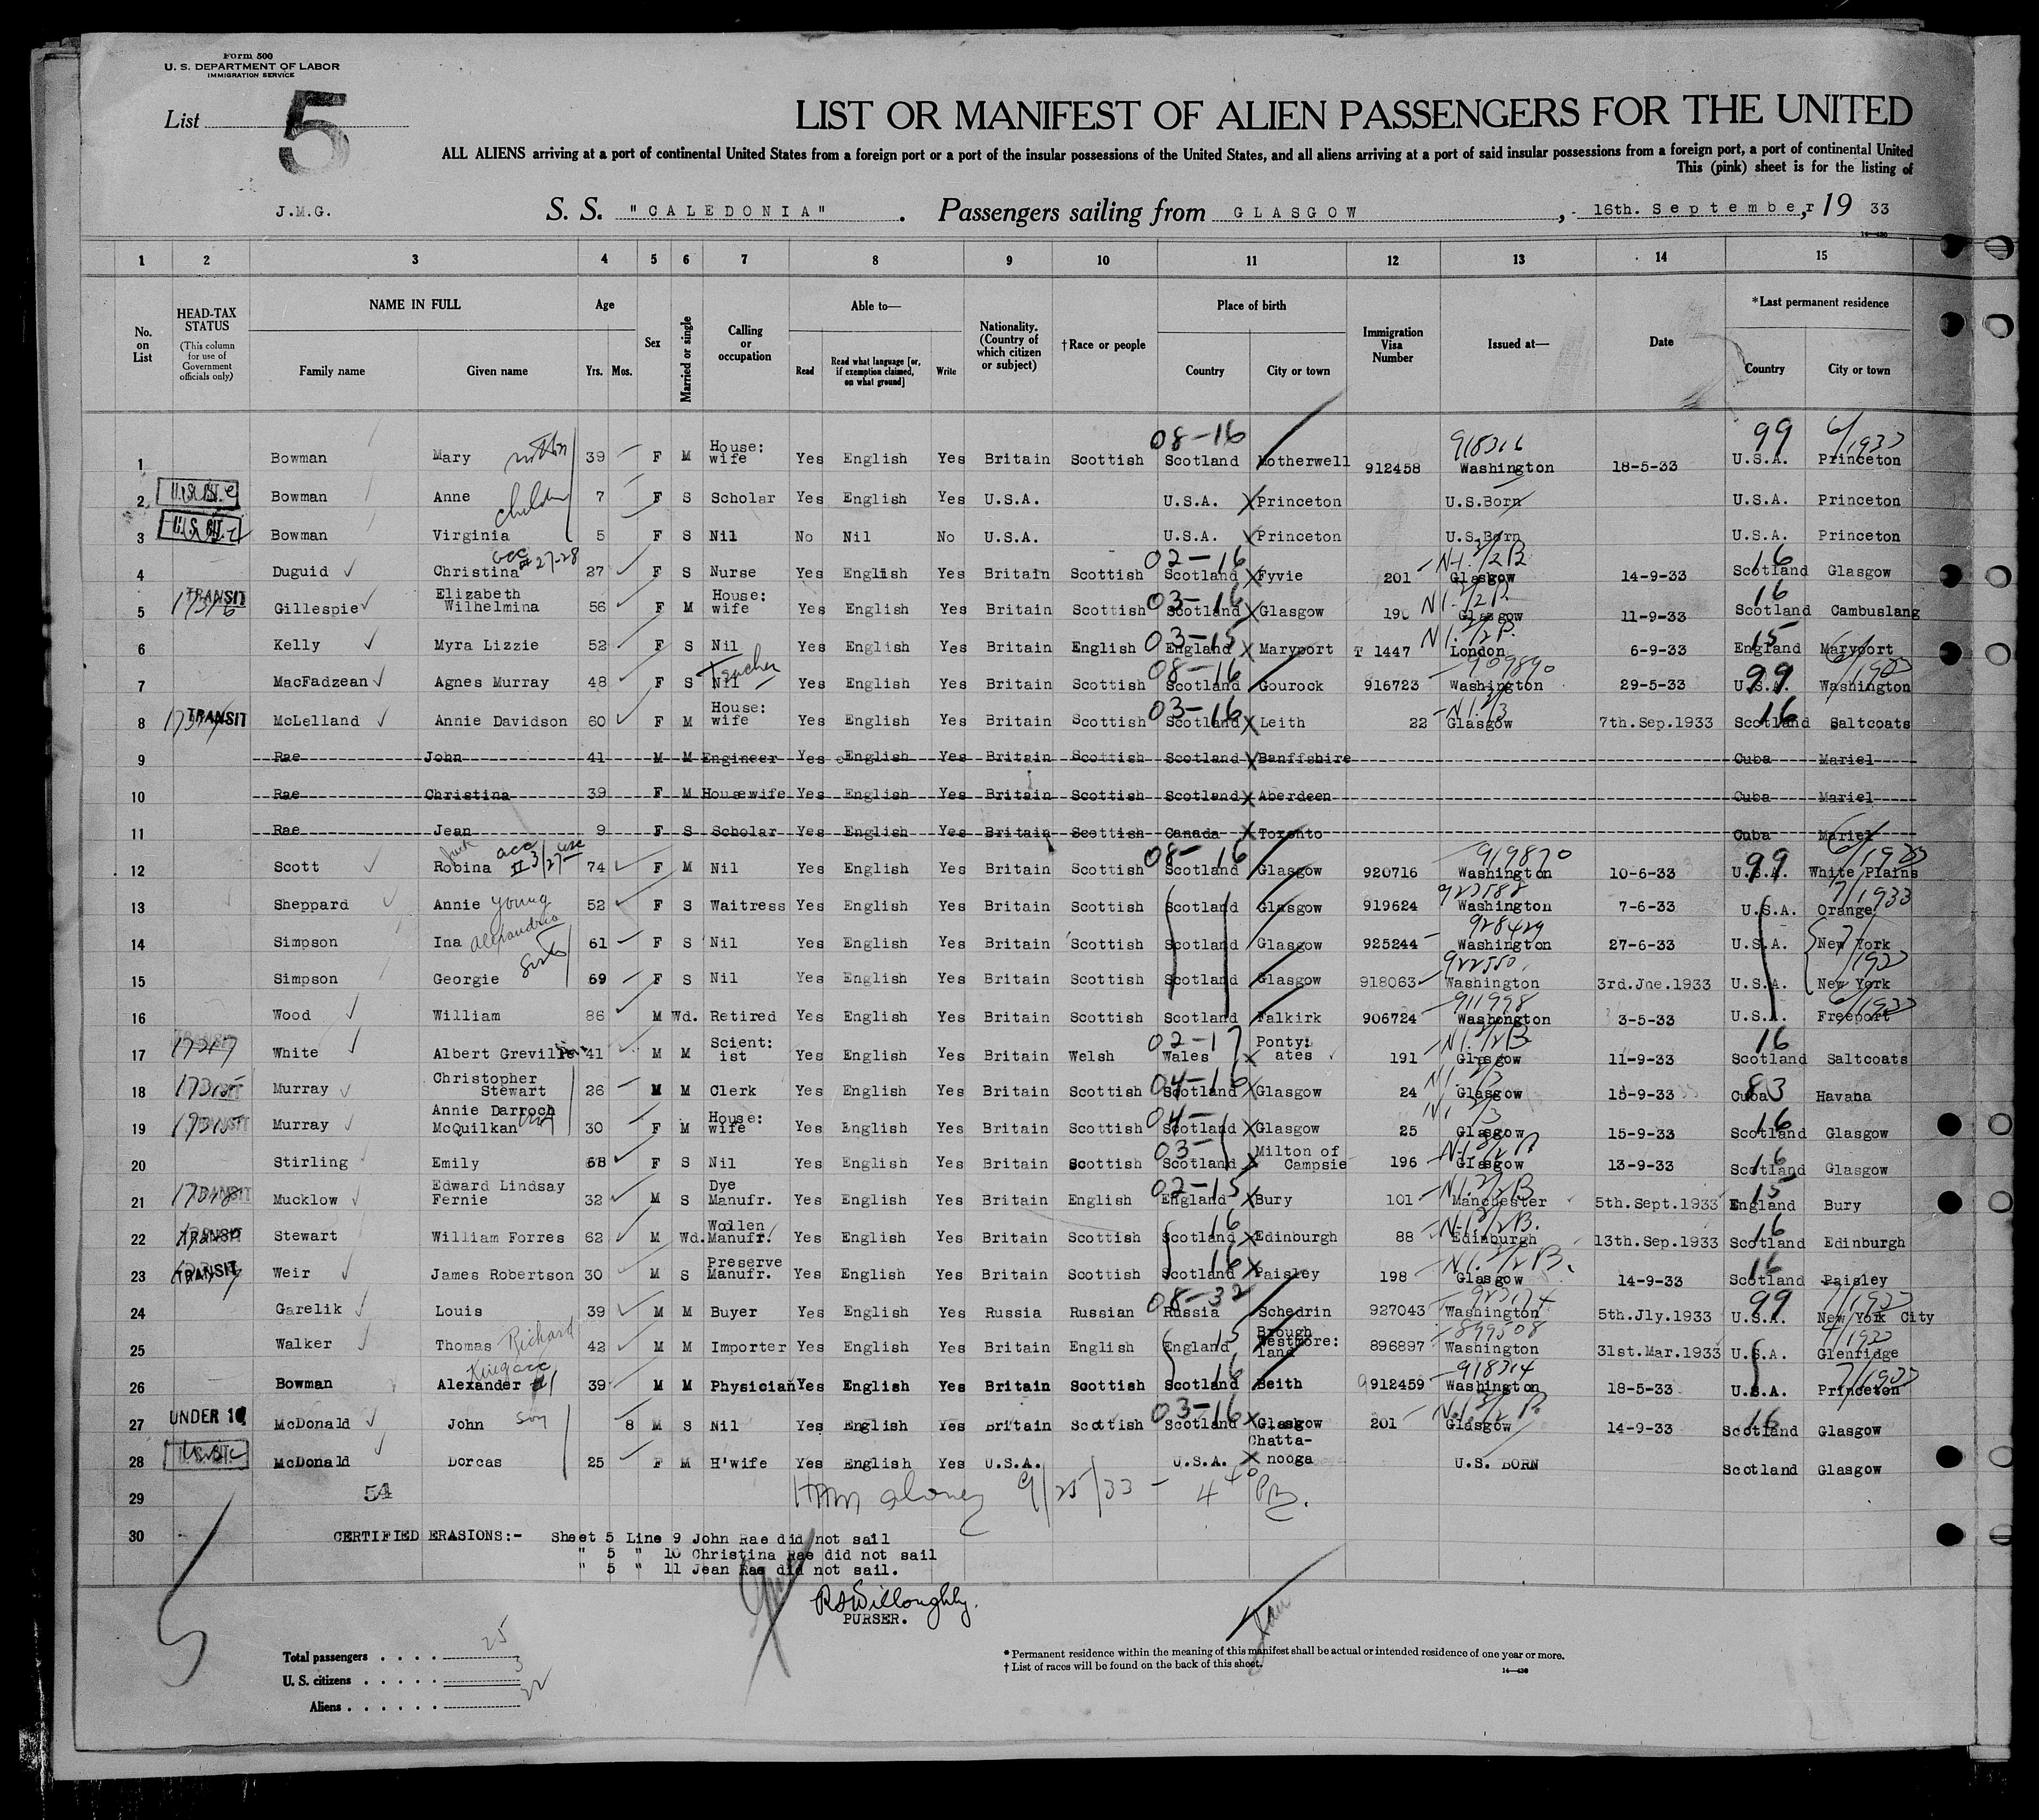 Form 500
U. S. DEPARTMENT OF LABOR
IMMIGRATION SERVICE
List 5
LIST OR MANIFEST OF ALIEN PASSENGERS FOR THE UNITED
ALL ALIENS arriving at a port of continental United States from a foreign port or a port of the insular possessions of the United States, and all aliens arriving at a port of said insular possessions from a foreign port, a port of continental United
This (pink) sheet is for the listing of
J.M.G. S. S. "CALEDONIA". Passengers sailing from GLASGOW, 16th. September, 19 33
1 2 3 4 5 6 7 8 9 10 11 12 13 14 15
No. on List
HEAD-TAX STATUS
(This column for use of Government officials only)
NAME IN FULL
Family name Given name
Age
Yrs. Mos.
Sex
Married or single
Calling or occupation
Able to—
Read Read what language [or, if exemption claimed, on what ground] Write
Nationality. (Country of which citizen or subject)
†Race or people
Place of birth
Country City or town
Immigration Visa Number
Issued at—
Date
*Last permanent residence
Country City or town
08-16 918316 99 6/1933
1 Bowman Mary 39 F M House: wife Yes English Yes Britain Scottish Scotland Motherwell 912458 Washington 18-5-33 U.S.A. Princeton
2 Bowman Anne 7 F S Scholar Yes English Yes U.S.A. U.S.A. Princeton U.S.Born U.S.A. Princeton
3 Bowman Virginia 5 F S Nil No Nil No U.S.A. U.S.A. Princeton U.S.Born U.S.A. Princeton
02-16 16
4 Duguid Christina 27 F S Nurse Yes English Yes Britain Scottish Scotland Fyvie 201 Glasgow 14-9-33 Scotland Glasgow
TRANSIT 03-16 16
5 Gillespie Elizabeth Wilhelmina 56 F M House: wife Yes English Yes Britain Scottish Scotland Glasgow Glasgow 11-9-33 Scotland Cambuslang
03-15 15
6 Kelly Myra Lizzie 52 F S Nil Yes English Yes Britain English England Maryport T 1447 London 6-9-33 England Maryport
Teacher 08-16 909890 99
7 MacFadzean Agnes Murray 48 F S Nil Yes English Yes Britain Scottish Scotland Gourock 916723 Washington 29-5-33 U.S.A. Washington
TRANSIT 03-16 16
8 McLelland Annie Davidson 60 F M House: wife Yes English Yes Britain Scottish Scotland Leith 22 Glasgow 7th.Sep.1933 Scotland Saltcoats
9 Rae John 41 M M Engineer Yes English Yes Britain Scottish Scotland Banffshire Cuba Mariel
10 Rae Christina 39 F M Housewife Yes English Yes Britain Scottish Scotland Aberdeen Cuba Mariel
11 Rae Jean 9 F S Scholar Yes English Yes Britain Scottish Canada Toronto Cuba Mariel
08-16 919870 99 6/1933
12 Scott Robina 74 F M Nil Yes English Yes Britain Scottish Scotland Glasgow 920716 Washington 10-6-33 U.S.A. White Plains
923588 7/1933
13 Sheppard Annie Young 52 F S Waitress Yes English Yes Britain Scottish Scotland Glasgow 919624 Washington 7-6-33 U.S.A. Orange
928429
14 Simpson Ina Alexandria 61 F S Nil Yes English Yes Britain Scottish Scotland Glasgow 925244 Washington 27-6-33 U.S.A. New York
922550 7/1933
15 Simpson Georgie 69 F S Nil Yes English Yes Britain Scottish Scotland Glasgow 918063 Washington 3rd.Jne.1933 U.S.A. New York
911998 6/1933
16 Wood William 86 M Wd. Retired Yes English Yes Britain Scottish Scotland Falkirk 906724 Washongton 3-5-33 U.S.A. Freeport
02-17 16
17 White Albert Greville 41 M M Scient: ist Yes English Yes Britain Welsh Wales Ponty: ates 191 Glasgow 11-9-33 Scotland Saltcoats
04-16 83
18 Murray Christopher Stewart 26 M M Clerk Yes English Yes Britain Scottish Scotland Glasgow 24 Glasgow 15-9-33 Cuba Havana
04- 16
19 Murray Annie Darroch McQuilkan 30 F M House: wife Yes English Yes Britain Scottish Scotland Glasgow 25 Glasgow 15-9-33 Scotland Glasgow
03- 16
20 Stirling Emily 68 F S Nil Yes English Yes Britain Scottish Scotland Milton of Campsie 196 Glasgow 13-9-33 Scotland Glasgow
TRANSIT 02-15 15
21 Mucklow Edward Lindsay Fernie 32 M S Dye Manufr. Yes English Yes Britain English England Bury 101 Manchester 5th.Sept.1933 England Bury
TRANSIT 16 16
22 Stewart William Forres 62 M Wd. Wollen Manufr. Yes English Yes Britain Scottish Scotland Edinburgh 88 Edinburgh 13th.Sep.1933 Scotland Edinburgh
TRANSIT 16 16
23 Weir James Robertson 30 M S Preserve Manufr. Yes English Yes Britain Scottish Scotland Paisley 198 Glasgow 14-9-33 Scotland Paisley
08-32 99 7/1933
24 Garelik Louis 39 M M Buyer Yes English Yes Russia Russian Russia Schedrin 927043 Washington 5th.Jly.1933 U.S.A. New York City
15 899508 4/1933
25 Walker Thomas Richard 42 M M Importer Yes English Yes Britain English England Brough Westmore: land 896897 Washington 31st.Mar.1933 U.S.A. Glenridge
16 918314 7/1933
26 Bowman Alexander 39 M M Physician Yes English Yes Britain Scottish Scotland Beith 912459 Washington 18-5-33 U.S.A. Princeton
UNDER 16 03-16 16
27 McDonald John son 8 M S Nil Yes English Yes Britain Scottish Scotland Glasgow 201 Glasgow 14-9-33 Scotland Glasgow
28 McDonald Dorcas 25 F M H'wife Yes English Yes U.S.A. U.S.A. Chatta- nooga U.S. BORN Scotland Glasgow
29 54 9/25/33 - 4 40
30 CERTIFIED ERASIONS:- Sheet 5 Line 9 John Rae did not sail
" 5 " 10 Christina Rae did not sail
" 5 " 11 Jean Rae did not sail.
RSWilloughby.
PURSER.
Total passengers . . . . 25
U. S. citizens . . . . . 3
Aliens . . . . . . 22
* Permanent residence within the meaning of this manifest shall be actual or intended residence of one year or more.
† List of races will be found on the back of this sheet.
14—430